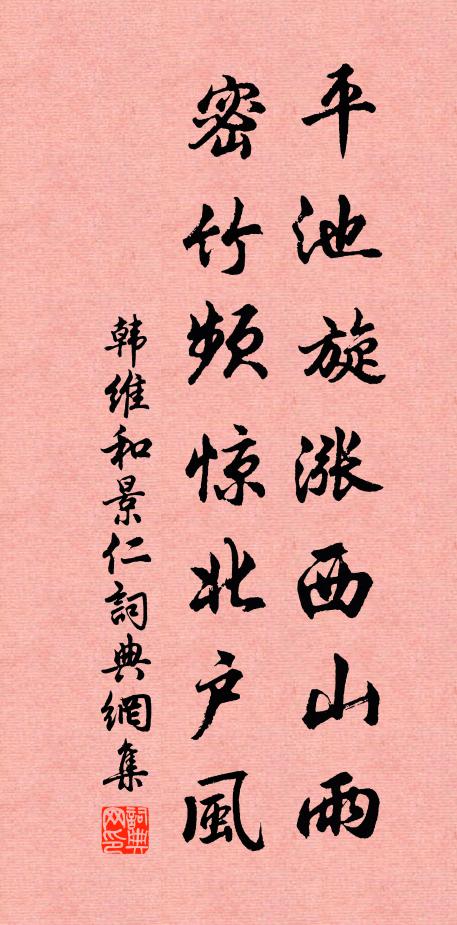 平池旋涨西山雨
密竹频惊北户風
韩维和景仁詞典網集
詞典网印